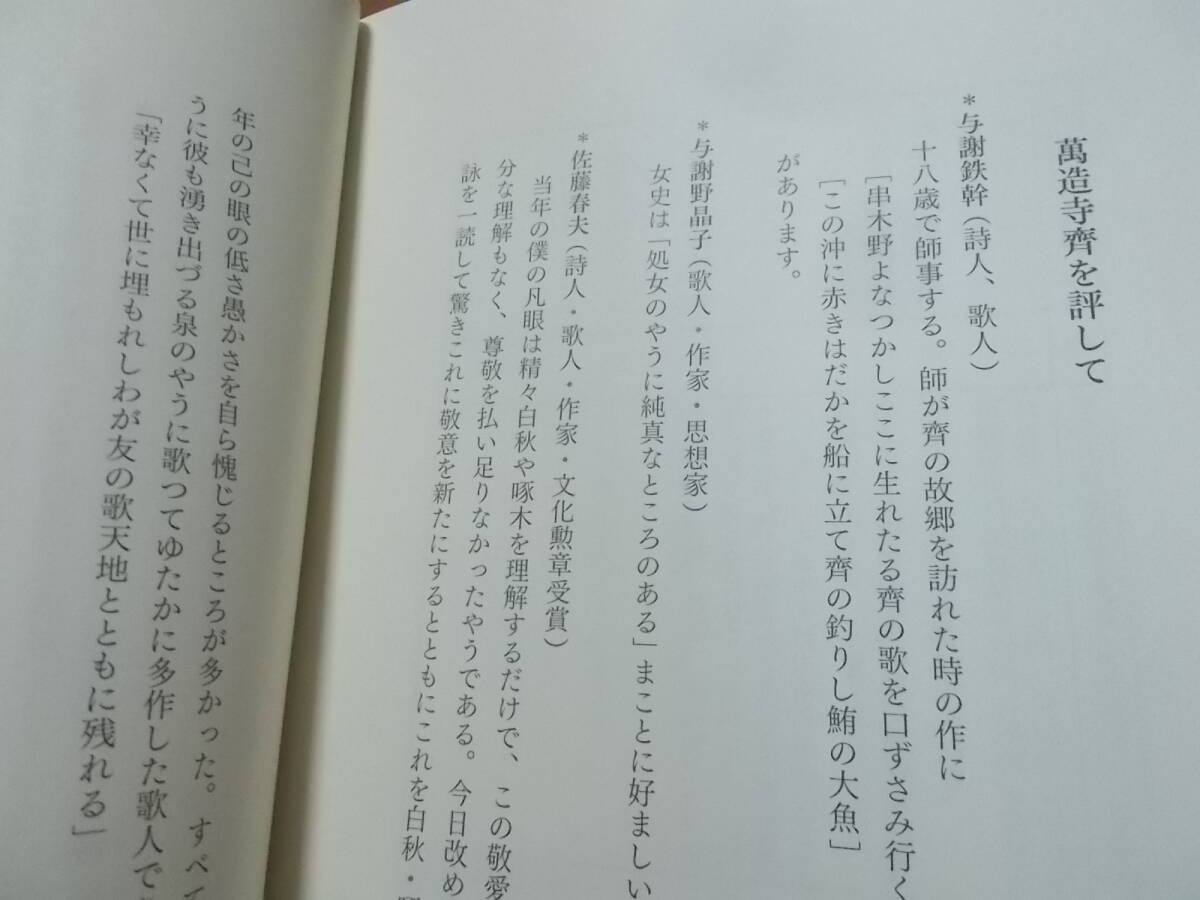 萬造寺齊を評して
＊与謝鉄幹（詩人、歌人）
十八歳で師事する。師が齊の故郷を訪れた時の作に
［串木野よなつかしここに生れたる齊の歌を口ずさみ行く
［この沖に赤きはだかを船に立て齊の釣りし鮪の大魚］
があります。
＊与謝野晶子（歌人・作家・思想家）
女史は「処女のやうに純真なところのある」まことに好ましい
＊佐藤春夫（詩人・歌人・作家・文化勲章受賞）
当年の僕の凡眼は精々白秋や啄木を理解するだけで、この敬愛
分な理解もなく、尊敬を払い足りなかったやうである。今日改め
詠を一読して驚きこれに敬意を新たにするとともにこれを白秋・
年の己の眼の低さ愚かさを自ら愧じるところが多かった。すべて
うに彼も湧き出づる泉のやうに歌つてゆたかに多作した歌人で
「幸なくて世に埋もれしわが友の歌天地とともに残れる」